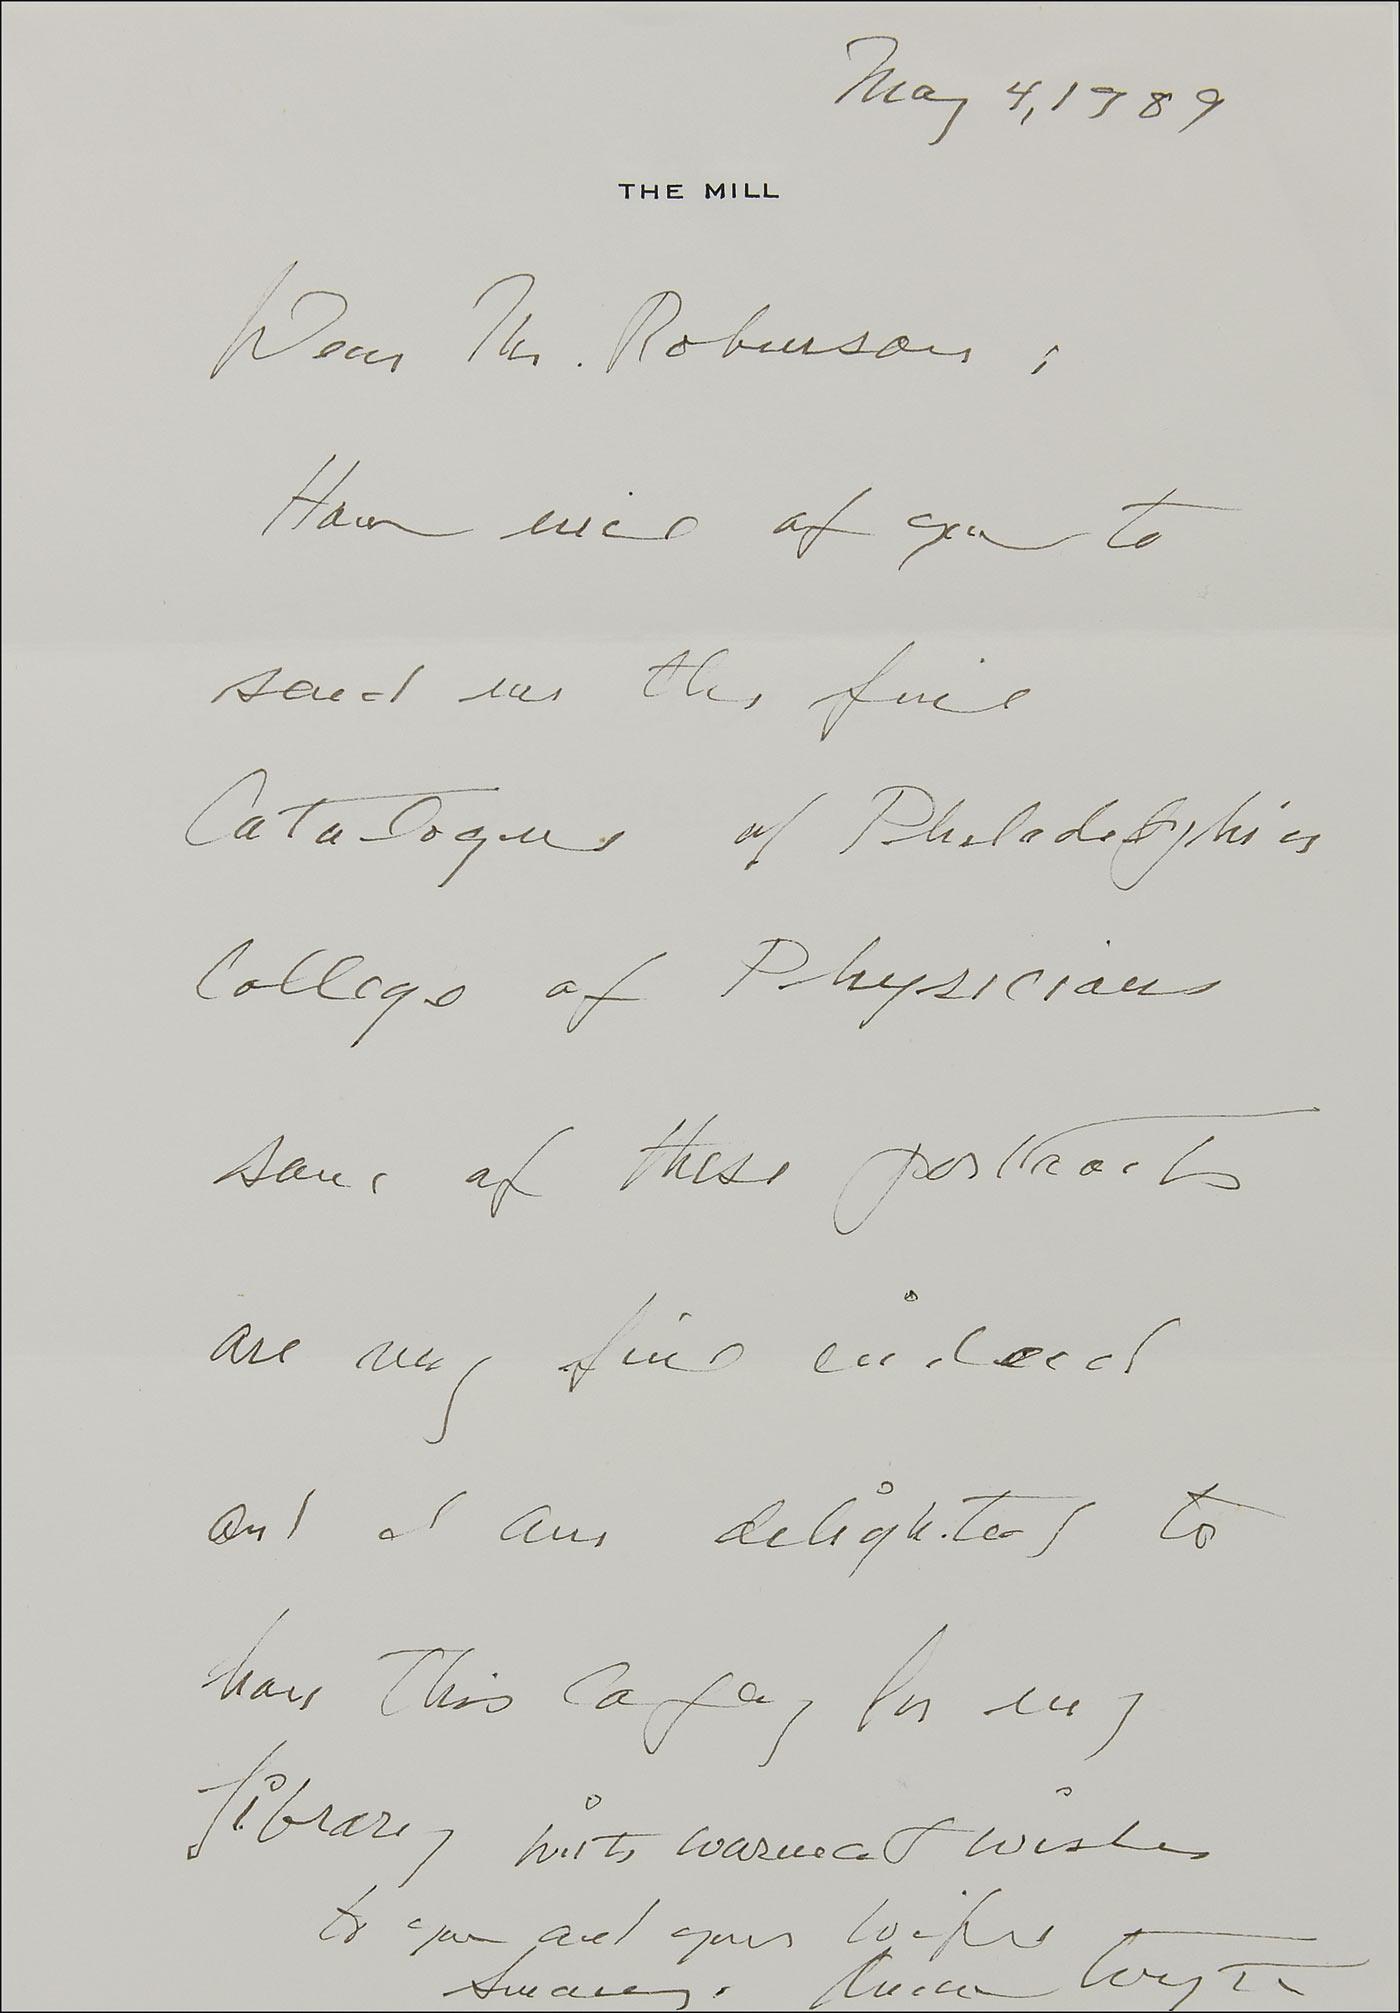 May 4, 1989
THE MILL
Dear Mr. Robinson;
How nice of you to
send me the fine
Catalogue of Philadelphia
College of Physicians
some of these portraits
are very fine indeed
and I am delighted to
have this copy for my
library with warmest wishes
to you and your wife
Sincerely, Andrew Wyeth